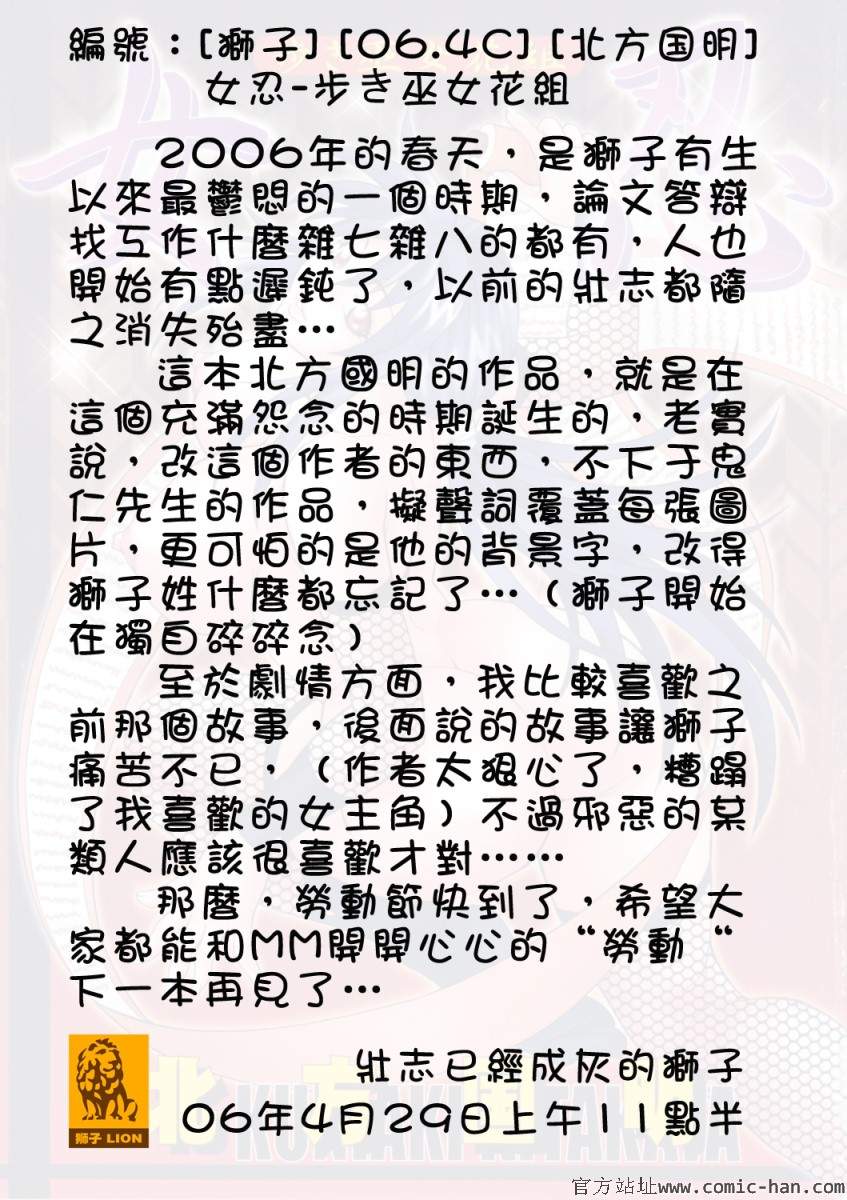 編號：[獅子] [06.4C] [北方国明]
女忍-步き巫女花組
2006年的春天，是獅子有生
以來最鬱悶的一個時期，論文答辯
找工作什麼雜七雜八的都有，人也
開始有點遲鈍了，以前的壯志都隨
之消失殆盡…
這本北方國明的作品，就是在
這個充滿怨念的時期誕生的，老實
說，改這個作者的東西，不下于鬼
仁先生的作品，擬聲詞覆蓋每張圖
片，更可怕的是他的背景字，改得
獅子姓什麼都忘記了…（獅子開始
在獨自碎碎念）
至於劇情方面，我比較喜歡之
前那個故事，後面說的故事讓獅子
痛苦不已，（作者太狠心了，糟蹋
了我喜歡的女主角）不過邪惡的某
類人應該很喜歡才對……
那麼，勞動節快到了，希望大
家都能和MM開開心心的“勞動“
下一本再見了…
壯志已經成灰的獅子
06年4月29日上午11點半
獅子 LION
北方国明
官方站址www.comic-han.com